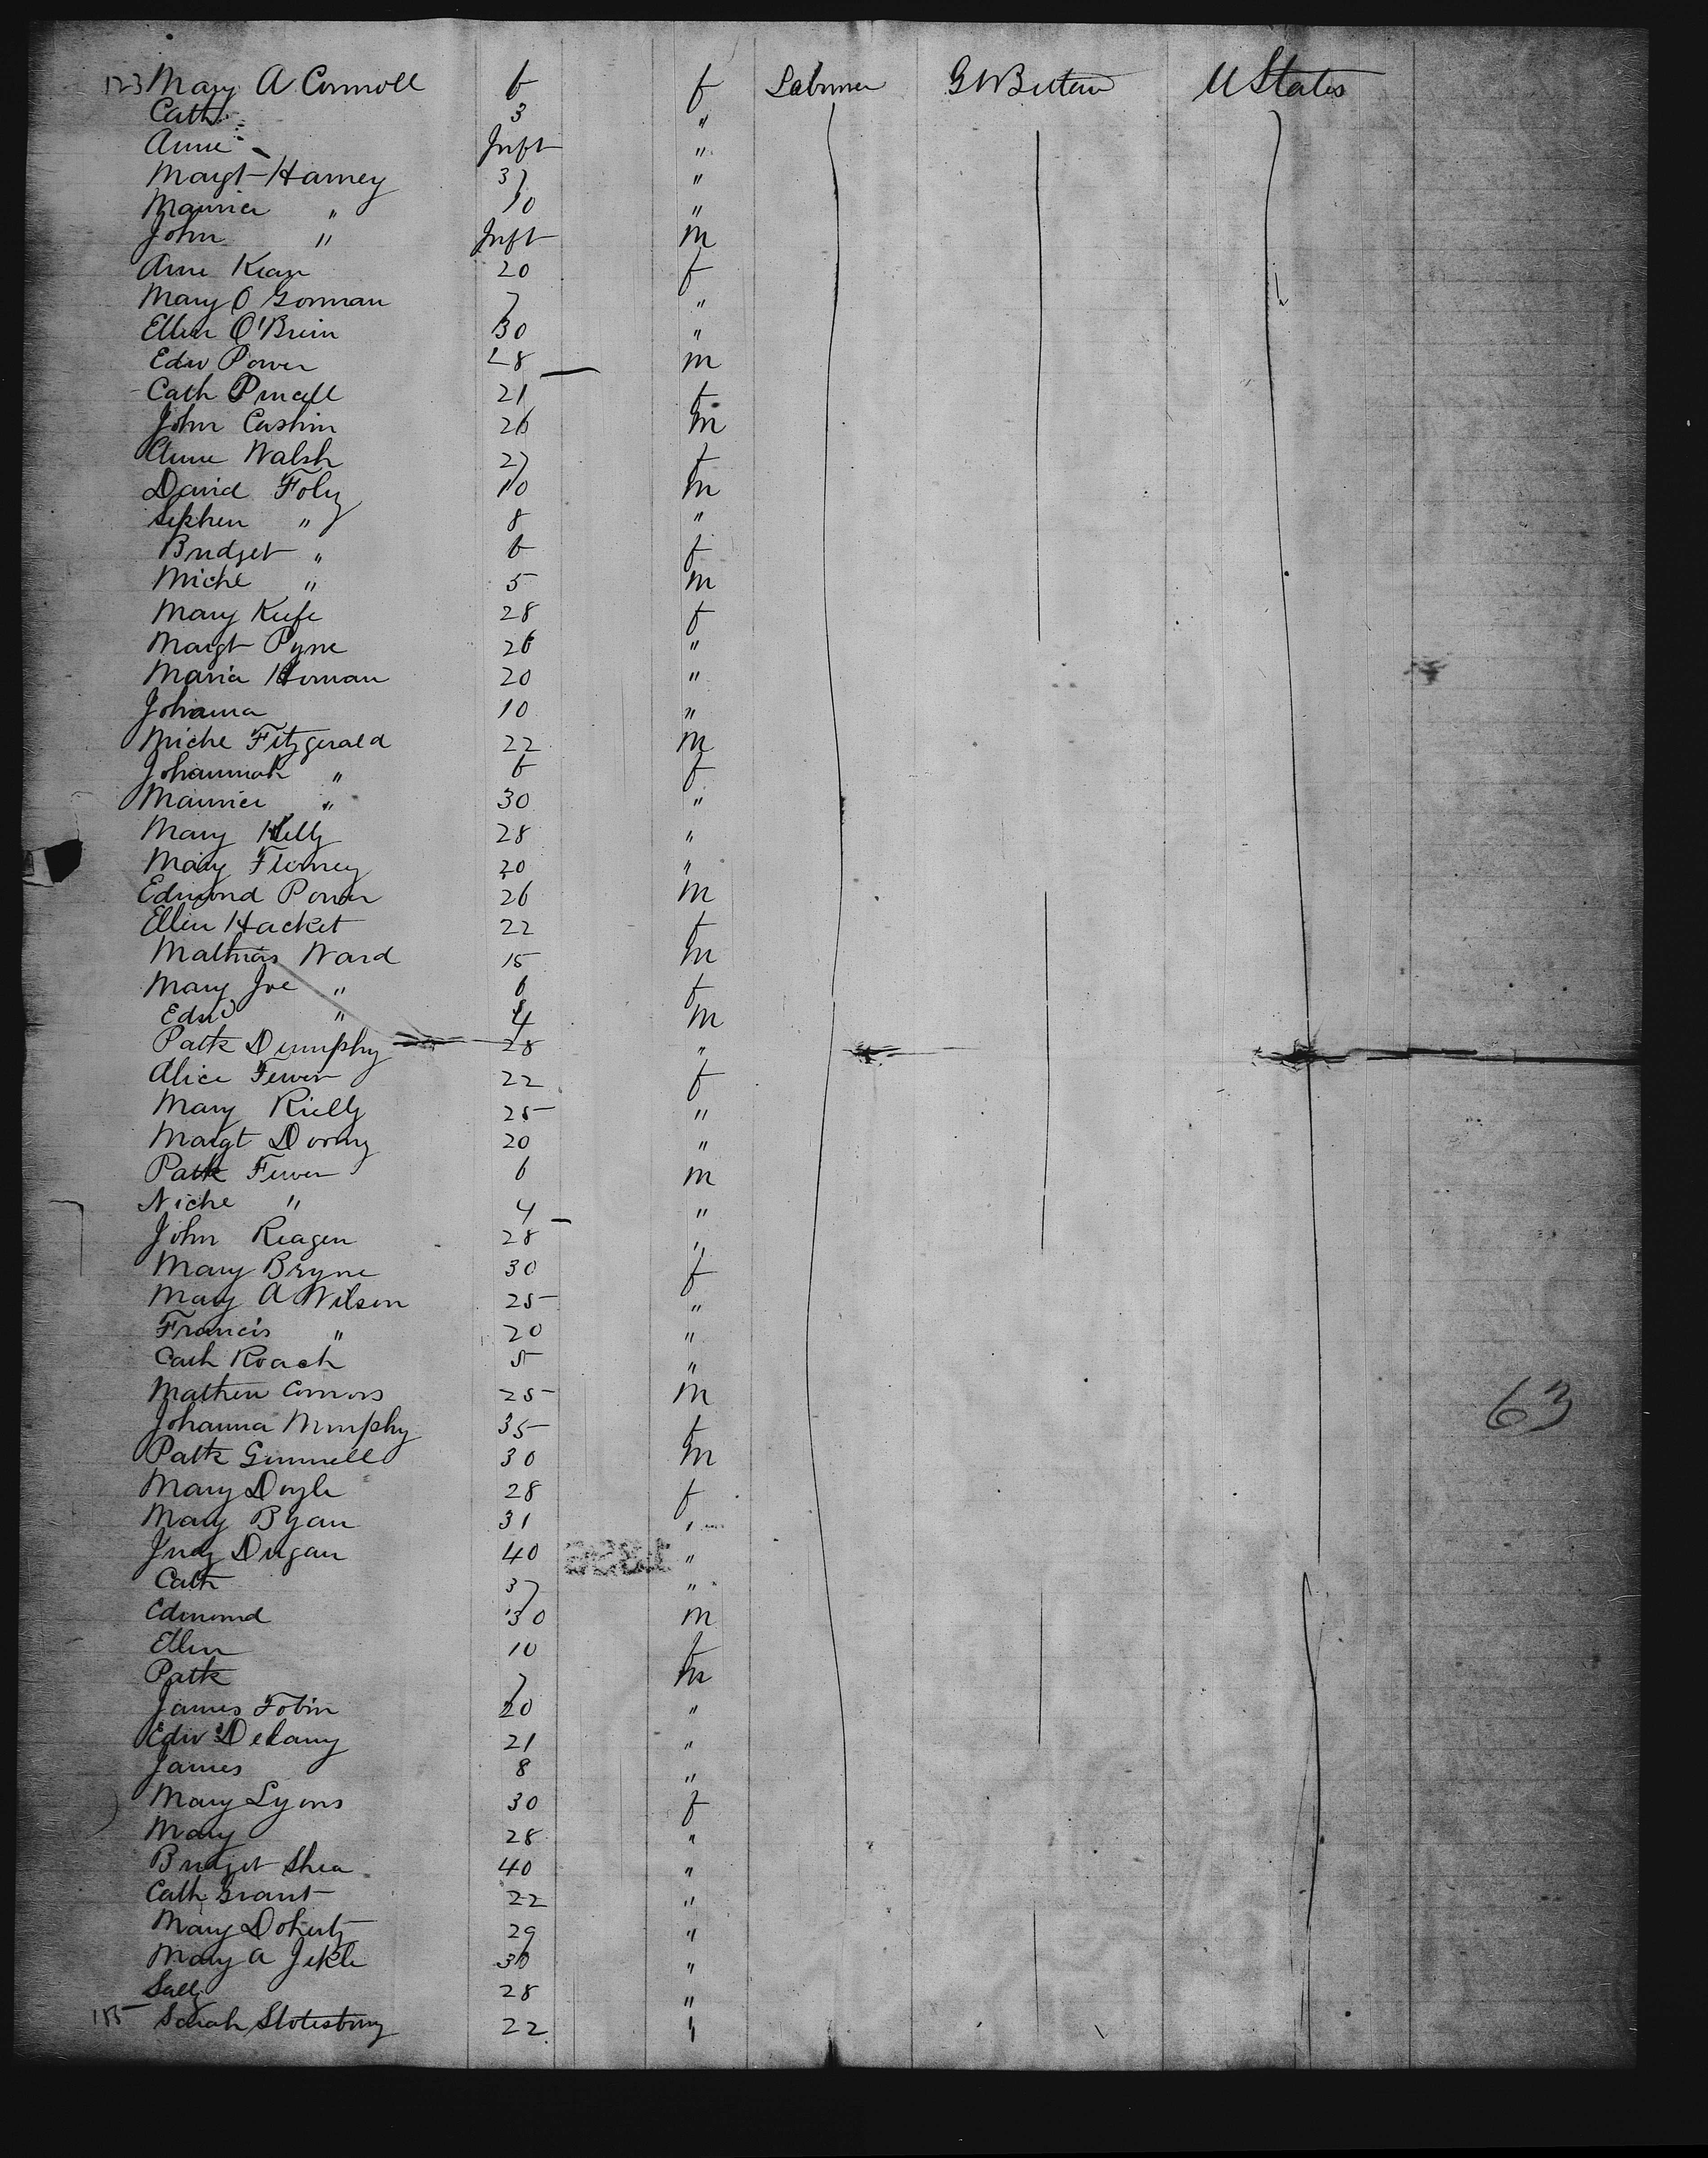 123 Mary A Connoll 6 f Labourer G Britain U States
Cath 3 "
Anne Inft "
Margt Harney 37 "
Maurice " 10 "
John " Inft m
Anne Kean 20 f
Mary O Gorman 7 "
Ellen O'Brien 30 "
Edw Power 28 m
Cath Purcell 21 f
John Cashin 26 m
Anne Walsh 27 f
David Foley 10 m
Stephen " 8 "
Bridget " 6 f
Miche " 5 m
Mary Keefe 28 f
Margt Pyne 26 "
Maria Hornan 20 "
Johanna 10 "
Miche Fitzgerald 22 m
Johannah " 6 f
Maurice " 30 "
Mary Kelly 28 "
Mary 20 "
Edmond Power 26 m
Ellen Hacket 22 f
Mathias Ward 15 m
Mary Joe " 6 f
Edwd " 4 m
Patk Dunphy 28 "
Alice Fewer 22 f
Mary Rielly 25 "
Margt 20 "
Patk Fewer 6 m
Niche " 4 "
John Reagen 28 "
Mary Bryne 30 f
Mary A Wilson 25 "
Francis " 20 "
Cath Roach 5 "
Mathew Connors 25 m
63
Johanna Murphy 35 f
Patk Gummell 30 m
Mary Doyle 28 f
Mary Byan 31 "
Judy Dugan 40 "
Cath 37 "
Edmond 30 m
Ellen 10 f
Patk 7 m
James Tobin 20 "
Edw Delany 21 "
James 8 "
Mary Lyons 30 f
Mary 28 "
Bridget Shea 40 "
Cath Grant 22 "
Mary Doherty 29 "
Mary A Jekle 30 "
Sally 28 "
185 Sarah Slotesbury 22 "